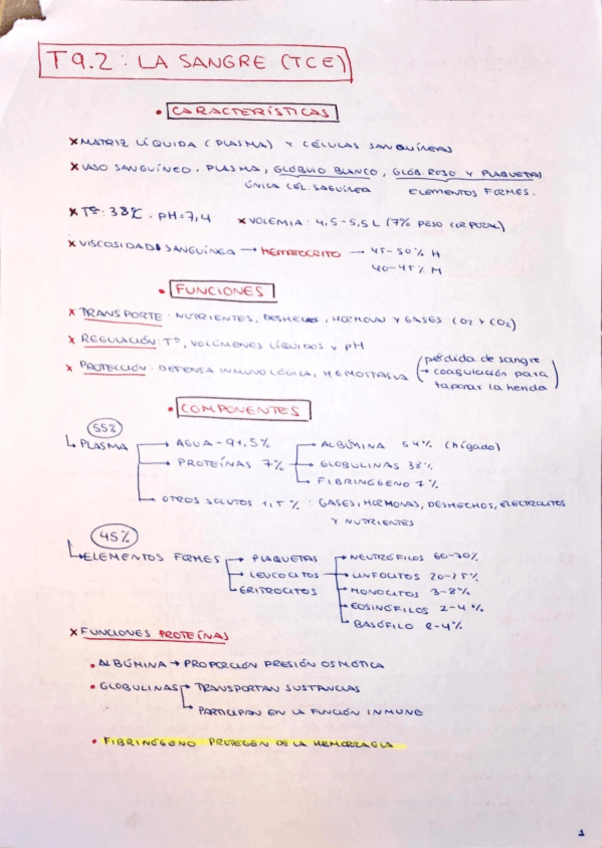 T9.2: LA SANGRE (TCE)
• CARACTERÍSTICAS
× MATRIZ LÍQUIDA (PLASMA) Y CÉLULAS SANGUÍNEAS
× VASO SANGUÍNEO, PLASMA, GLÓBULO BLANCO, GLÓB. ROJO Y PLAQUETAS
ÚNICA CÉL. SAGUÍNEA ELEMENTOS FORMES.
× Tº: 38ºC, PH=7,4 × VOLEMIA: 4,5-5,5 L (7% PESO CORPORAL)
× VISCOSIDAD SANGUÍNEA → HEMATOCRITO → 45-50% H
40-45% M
• FUNCIONES
× TRANSPORTE: NUTRIENTES, DESHECHOS, HORMONAS Y GASES (O2 Y CO2)
× REGULACIÓN: Tº, VOLÚMENES LÍQUIDOS Y PH
× PROTECCIÓN: DEFENSA INMUNOLÓGICA, HEMOSTASIA (pérdida de sangre
→ coagulación para
taponar la herida)
• COMPONENTES
55%
↳ PLASMA → AGUA - 91,5% → ALBÚMINA 54% (hígado)
→ PROTEÍNAS 7% → GLOBULINAS 38%
→ FIBRINÓGENO 7%
→ OTROS SOLUTOS 1,5%: GASES, HORMONAS, DESHECHOS, ELECTROLITOS
Y NUTRIENTES
45%
↳ ELEMENTOS FORMES → PLAQUETAS → NEUTRÓFILOS 60-70%
→ LEUCOCITOS → LINFOCITOS 20-25%
→ ERITROCITOS → MONOCITOS 3-8%
→ EOSINÓFILOS 2-4%
→ BASÓFILO 2-4%
× FUNCIONES PROTEÍNAS
• ALBÚMINA → PROPORCIÓN PRESIÓN OSMÓTICA
• GLOBULINAS → TRANSPORTAN SUSTANCIAS
↳ PARTICIPAN EN LA FUNCIÓN INMUNE
• FIBRINÓGENO PROTEGEN DE LA HEMORRAGIA
1